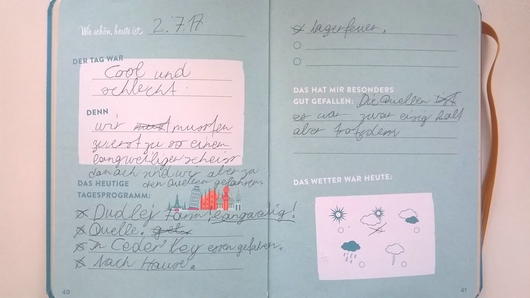 Wie schön, heute ist 2.7.17
DER TAG WAR
Cool und
schlecht.
DENN
wir mussten
zuerst zu so einem
langweiligen scheiss
danach sind wir aber zu
den Quellen gefahren.
DAS HEUTIGE
TAGESPROGRAMM:
x Dudlej Farm langweilig!
x Quelle.
x In Ceder Key essen gefahren.
x Nach Hause.
40
x Lagerfeuer.
DAS HAT MIR BESONDERS
GUT GEFALLEN: Die Quellen
es war zwar eisig kalt
aber trotzdem
DAS WETTER WAR HEUTE:
41